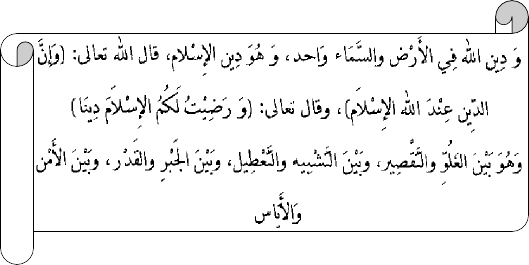 وَ دِينِ الله فِي الأَرْض والسَّمَاء وَاحد، وَ هُوَ دِين الإِسْلام، قال الله تعالى: (وَإنَّ
الدِّين عِنْدَ الله الإِسْلَام)، وقال تعالى: (وَ رَضِيْتُ لَكُمُ الإِسْلَامَ دِينَا)
وَهُوَ بَيْنَ الغلُوِّ والتَّقْصِير، وَبَيْنَ التَّشْبِيه والتَّعْطِيل، وَبَيْنَ الجَبْرِ والقَدْر، وَبَيْنَ الأَمْن
وَالأَيَاس